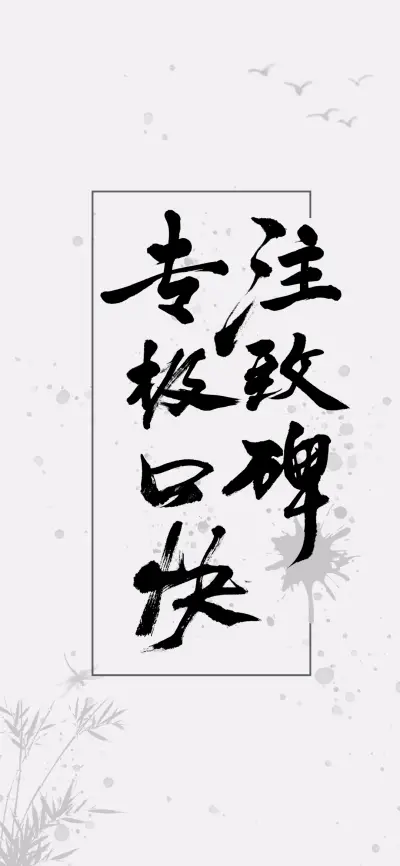 专注
极致
口碑
快